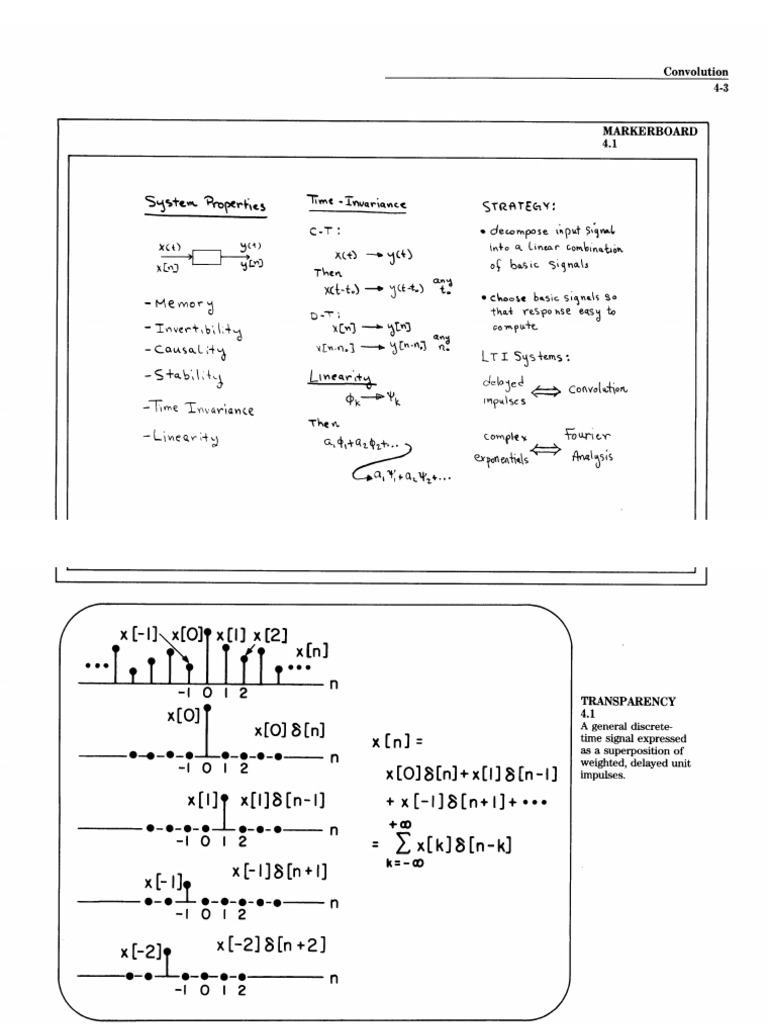 Convolution
4-3
MARKERBOARD
4.1
System Properties
x(t) y(t)
x[n] y[n]
- Memory
- Invertibility
- Causality
- Stability
- Time Invariance
- Linearity
Time - Invariance
C-T:
x(t) → y(t)
Then
x(t-t₀) → y(t-t₀) any t₀
D-T:
x[n] → y[n]
x[n-n₀] → y[n-n₀] any n₀
Linearity
ϕₖ → Ψₖ
Then
a₁ϕ₁+a₂ϕ₂+...
a₁Ψ₁+a₂Ψ₂+...
STRATEGY:
• decompose input signal
into a linear combination
of basic signals
• choose basic signals so
that response easy to
compute
LTI Systems:
delayed impulses ⟺ Convolution
complex exponentials ⟺ Fourier Analysis
x[-1] x[0] x[1] x[2]
x[n]
••• •••
-1 0 1 2 n
x[0]
x[0]δ[n]
-1 0 1 2 n
x[1] x[1]δ[n-1]
-1 0 1 2 n
x[-1] x[-1]δ[n+1]
-1 0 1 2 n
x[-2] x[-2]δ[n+2]
-1 0 1 2 n
x[n] =
x[0]δ[n]+x[1]δ[n-1]
+ x[-1]δ[n+1]+ •••
= ∑ₖ₌₋∞⁺∞ x[k]δ[n-k]
TRANSPARENCY
4.1
A general discrete-
time signal expressed
as a superposition of
weighted, delayed unit
impulses.